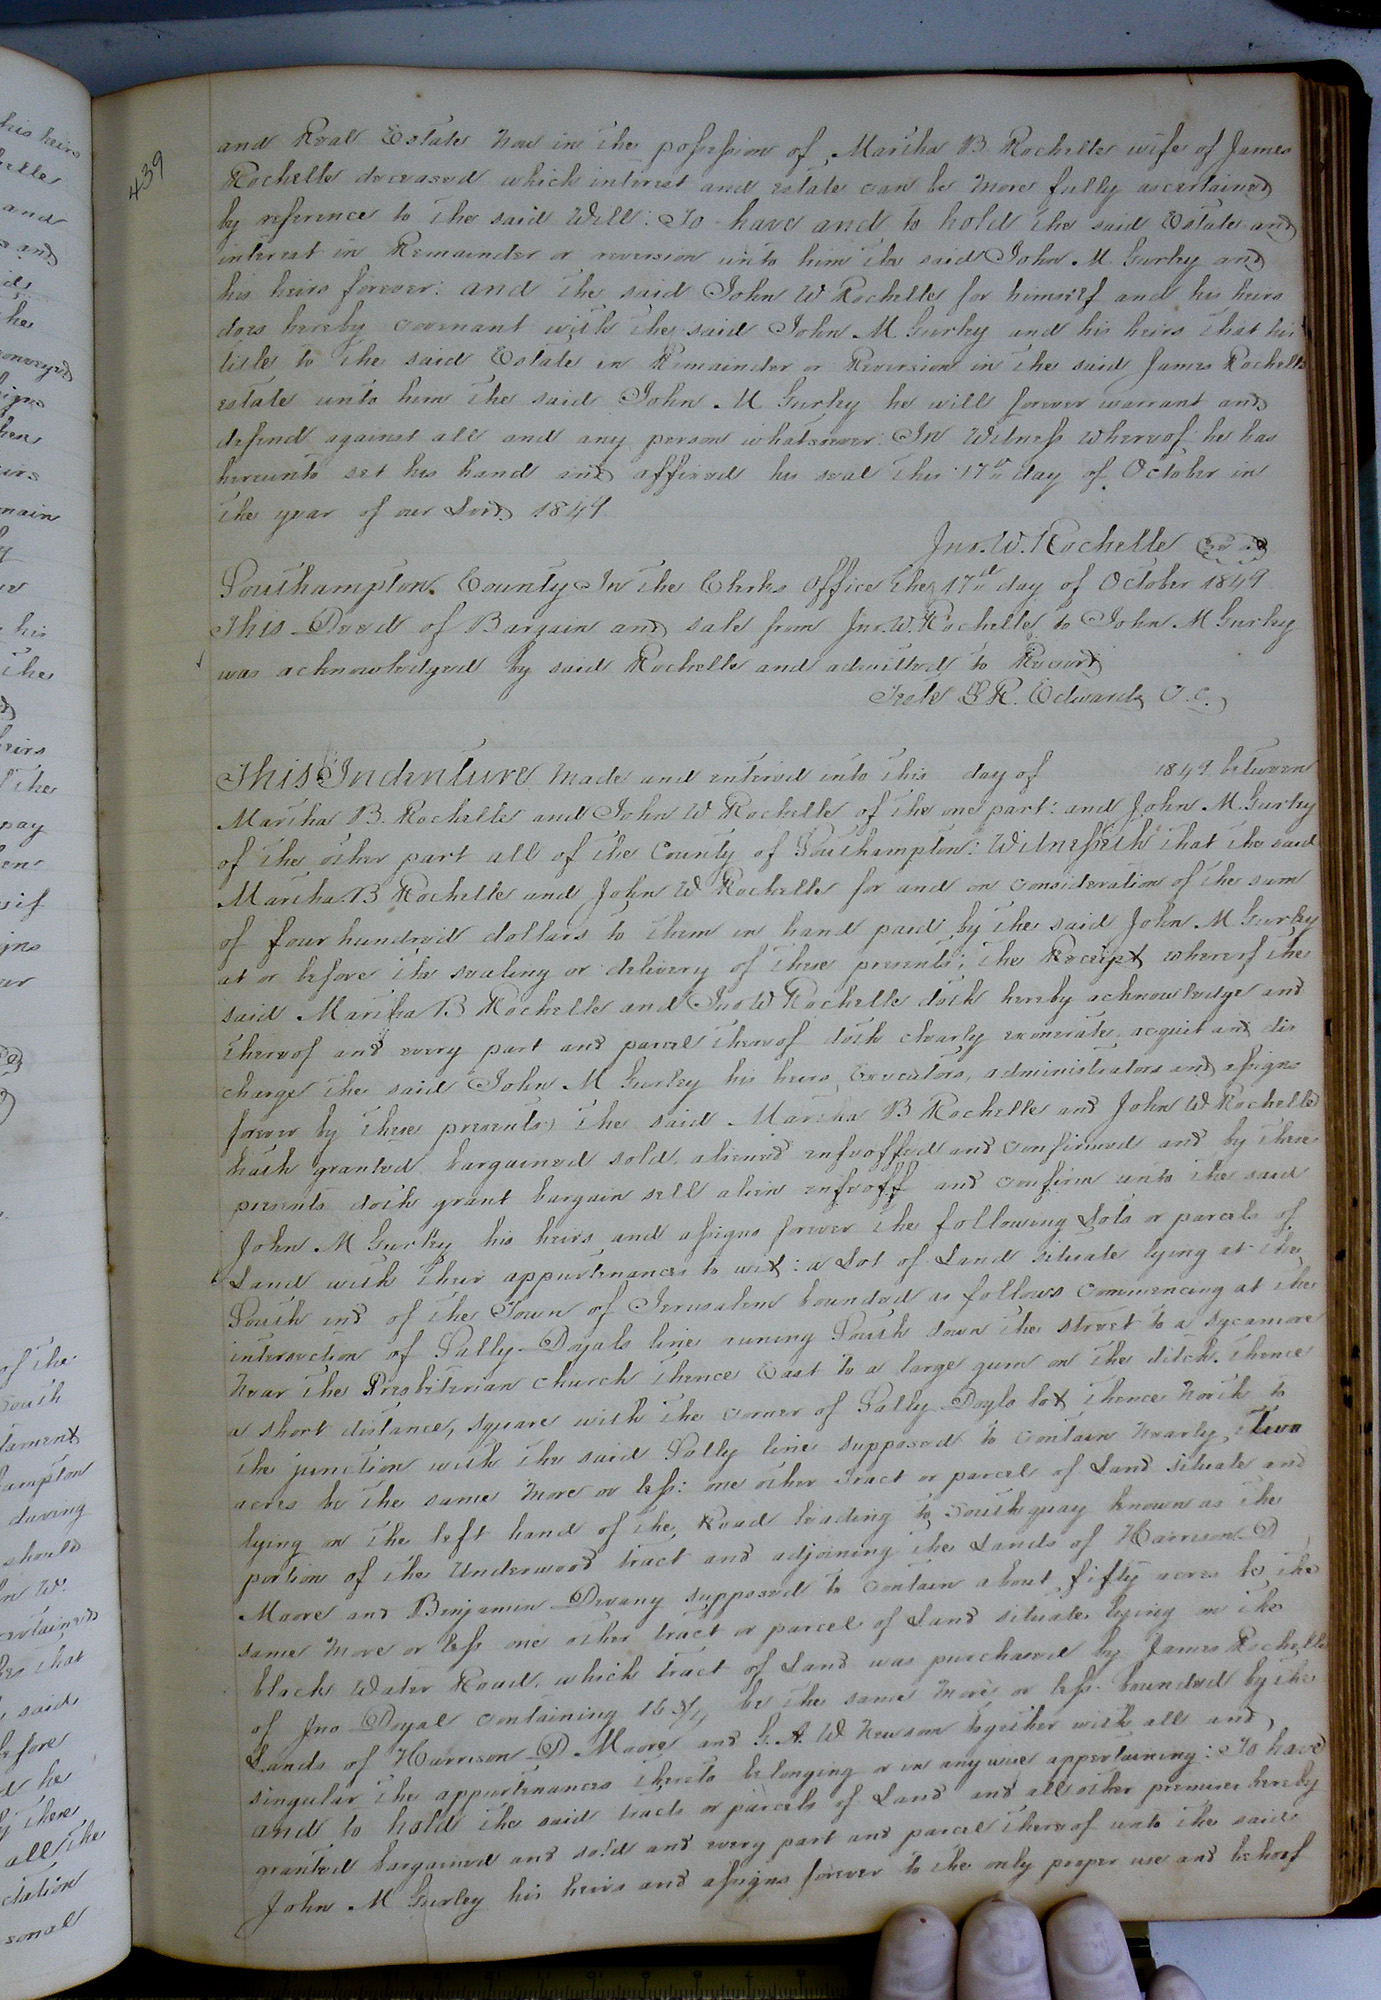 439
and Real Estate now in the possession of Martha B Rochelle wife of James
Rochelle deceased which interest and estate can be more fully ascertained
by reference to the said Will: To have and to hold the said Estate and
interest in Remainder or reversion unto him the said John M Gurley and
his heirs forever: and the said John W Rochelle for himself and his heirs
does hereby covenant with the said John M Gurley and his heirs that his
title to the said Estate in Remainder or Reversion in the said James Rochelle
estate unto him the said John M Gurley he will forever warrant and
defend against all and any person whatsoever. In Witness whereof he has
hereunto set his hand and affixed his seal this 17th day of October in
the year of our Lord 1849
Jno. W. Rochelle Seal
Southampton County In the Clerks Office the 17th day of October 1849
This Deed of Bargain and sale from Jno. W. Rochelle to John M Gurley
was acknowledged by said Rochelle and admitted to Record
Teste L R. Edwards C.C.
This Indenture made and entered into this day of 1849 between
Martha B. Rochelle and John W Rochelle of the one part: and John M. Gurley
of the other part all of the County of Southampton: Witnesseth that the said
Martha B Rochelle and John W Rochelle for and on consideration of the sum
of four hundred dollars to them in hand paid by the said John M Gurley
at or before the sealing or delivery of these presents; the Receipt whereof the
said Martha B Rochelle and Jno W Rochelle doth hereby acknowledge and
thereof and every part and parcel thereof doth clearly exonerate, acquit and dis
charge the said John M Gurley his heirs, Executors, administrators and assigns
forever by these presents) the said Martha B Rochelle and John W Rochelle
hath granted bargained sold, aliened enfeoffed and confirmed and by these
presents doth grant bargain sell alien enfeoff and confirm unto the said
John M Gurley his heirs and assigns forever the following Lots or parcels of
Land with their appurtenances to wit: a Lot of Land situate lying at the
South end of the Town of Jerusalem bounded as follows Commencing at the
intersection of Sally Doyals line runing South down the street to a sycamore
Near the Presbiterian church thence East to a large gum on the ditch. thence
a short distance, square with the corner of Sally Doyls lot thence North to
the junction with the said Sally line supposed to contain nearly two
acres be the same more or less: one other Tract or parcel of Land situate and
lying on the left hand of the Road leading to Southquay known as the
portion of the Underwood tract and adjoining the Lands of Harrison D
Moore and Benjamin Devany supposed to contain about fifty acres be the
same more or less one other tract or parcel of Land situate lying on the
black Water Road, which tract of Land was purchased by James Rochelle
of Jno Doyal containing 16 3/4 be the same more or less. bounded by the
Lands of Harrison D Moore and G. A. W Newsom together with all and
singular the appurtenances thereto belonging or in any wise appertaining: To have
and to hold the said tracts or parcels of Land and all other premises hereby
granted bargained and sold and every part and parcel thereof unto the said
John M Gurley his heirs and assigns forever to the only proper use and behoof